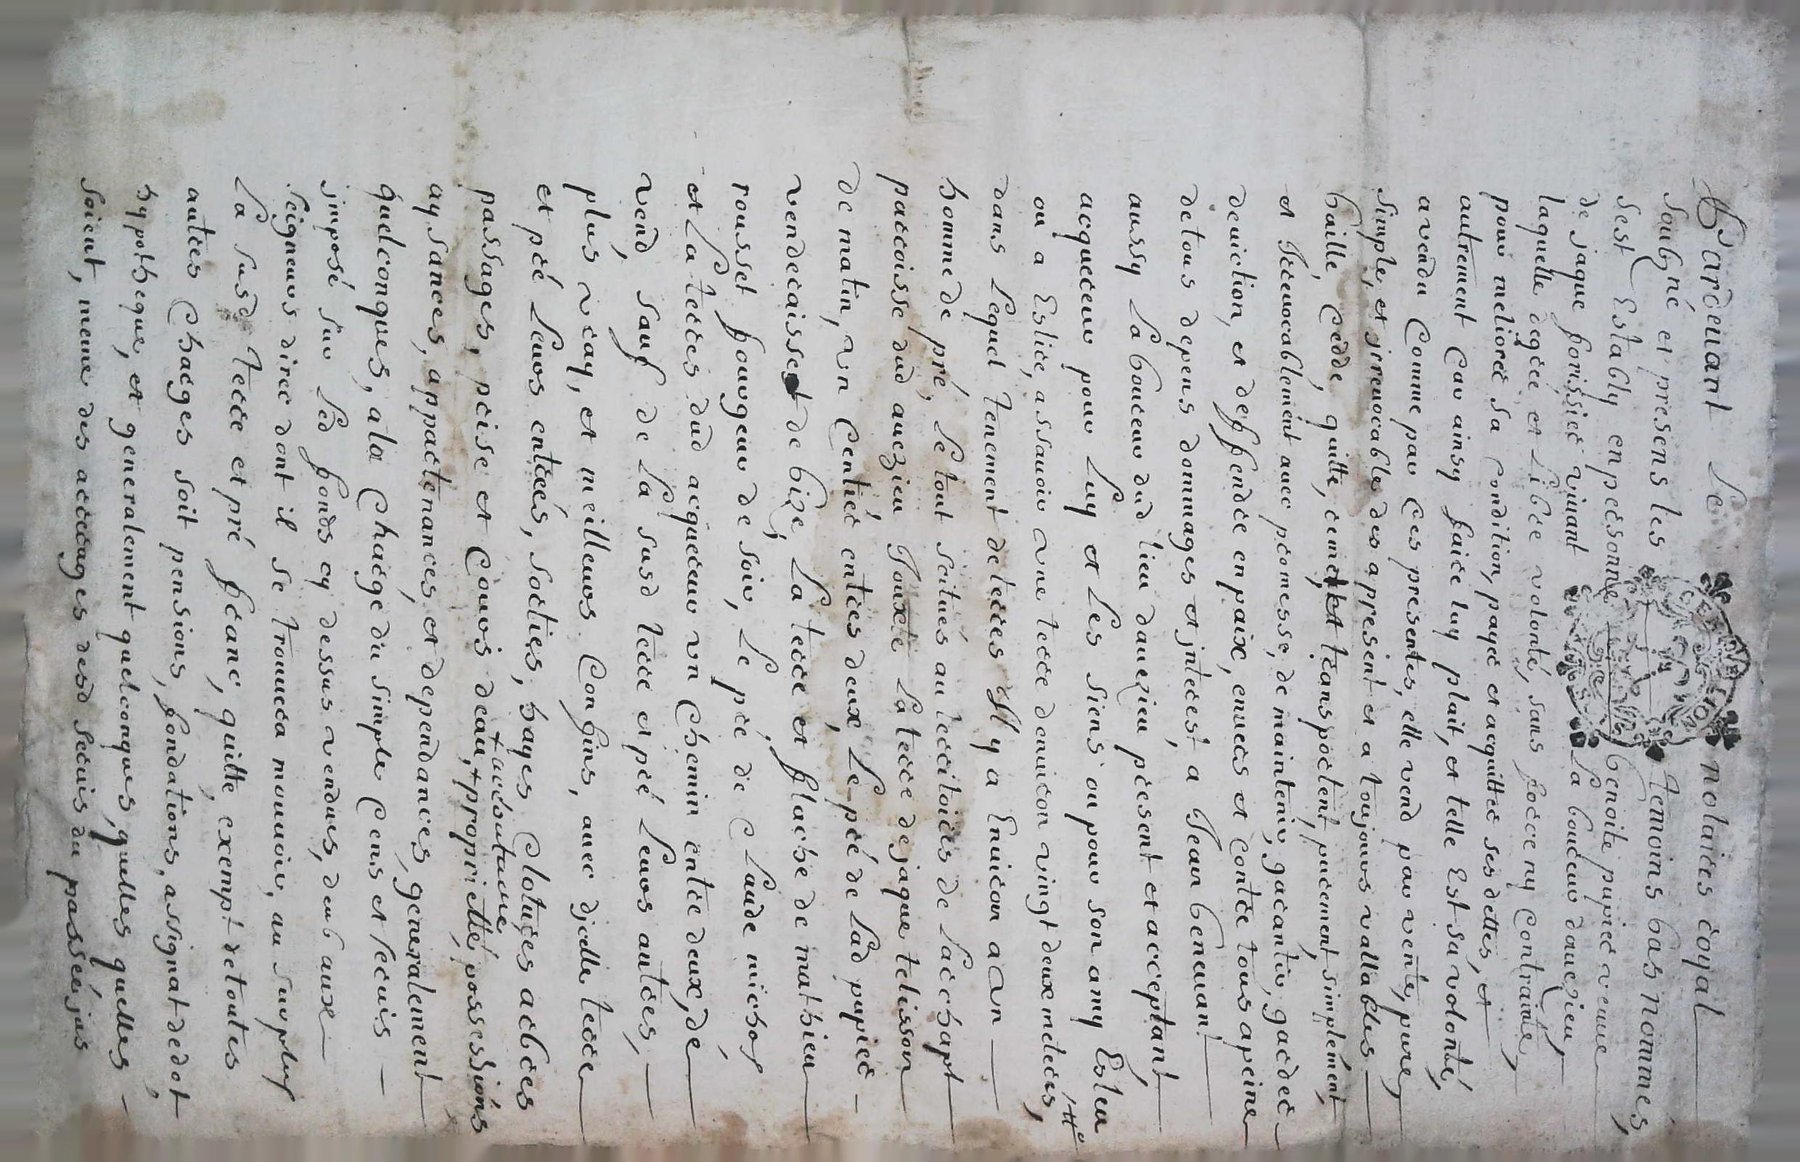 Pardeuant Le notaires royal
soubgné et presens les temoins bas nommés,
sest Estably en personne benoite pupier veuue
de jaque forissier viuant Laboureur dauezieu,
laquelle degrée et Libre volonté, sans force ny contrainte,
pour méliorer sa condition, payer et acquitter ses dettes, et
autrement Car ainsy faire luy plait, et telle Est sa volonté,
a vendu Comme par Ces presentes, elle vend par vente, pure,
simple, et jrreuocables des apresent et a toujours vallables
baille, Cedde, quitte, remet et transportent, purement, simplement,
et Jrreuocablement auec promesse, de maintenir, garantir, garder
deuiction, et deffendre en paix, enuers et Contre tous a peine
de tous depens dommages et jnterest, a Jean beneuant
aussy Laboureur dud lieu dauezieu present et acceptant,
acquereur pour Luy et Les siens ou pour son amy Esleu
ou a Eslire, assauoir une terre denuiron vingt deux meteres,
dans Lequel tenement de terres Il y a Enuiron a un
homme de pré, Le tout scitués au territoires de Larchapt
parroisse dud auezieu Jouxte La terre de jaque telisson
de matin, un Centier entres deux, Le pré de Lad pupier
vendeaisse de bize, La terre et flache de mathieu
rousset fourgeur de soir, Le pré de Claude michel
et La terres dud acquereur un Chemin entre deux, de
vend, sauf de La susd terre et pré Leurs autres,
plus vray, et meilleurs Confins, auec djcelle terre
et pré Leurs entrées, sorties, hayes clotures arbres
passages, prise et Cours deau, + propriette possessions
+ arbuture
aysances, appartenances, et dependances, generalement
quelconques, a la Charge du simple Cens et seruis
jmposé sur Led fonds cy dessus vendues, deub aux
seigneurs direc dont il se trouuera mouuoir, au surplus
La susd terre et pré franc, quitte, exempt de toutes
autres Charges soit pensions, fondations, assignat de dot
hypotheque, et generalement quelconques, quelles quelles
soient, meme des arrerages desd seruis du passée jus